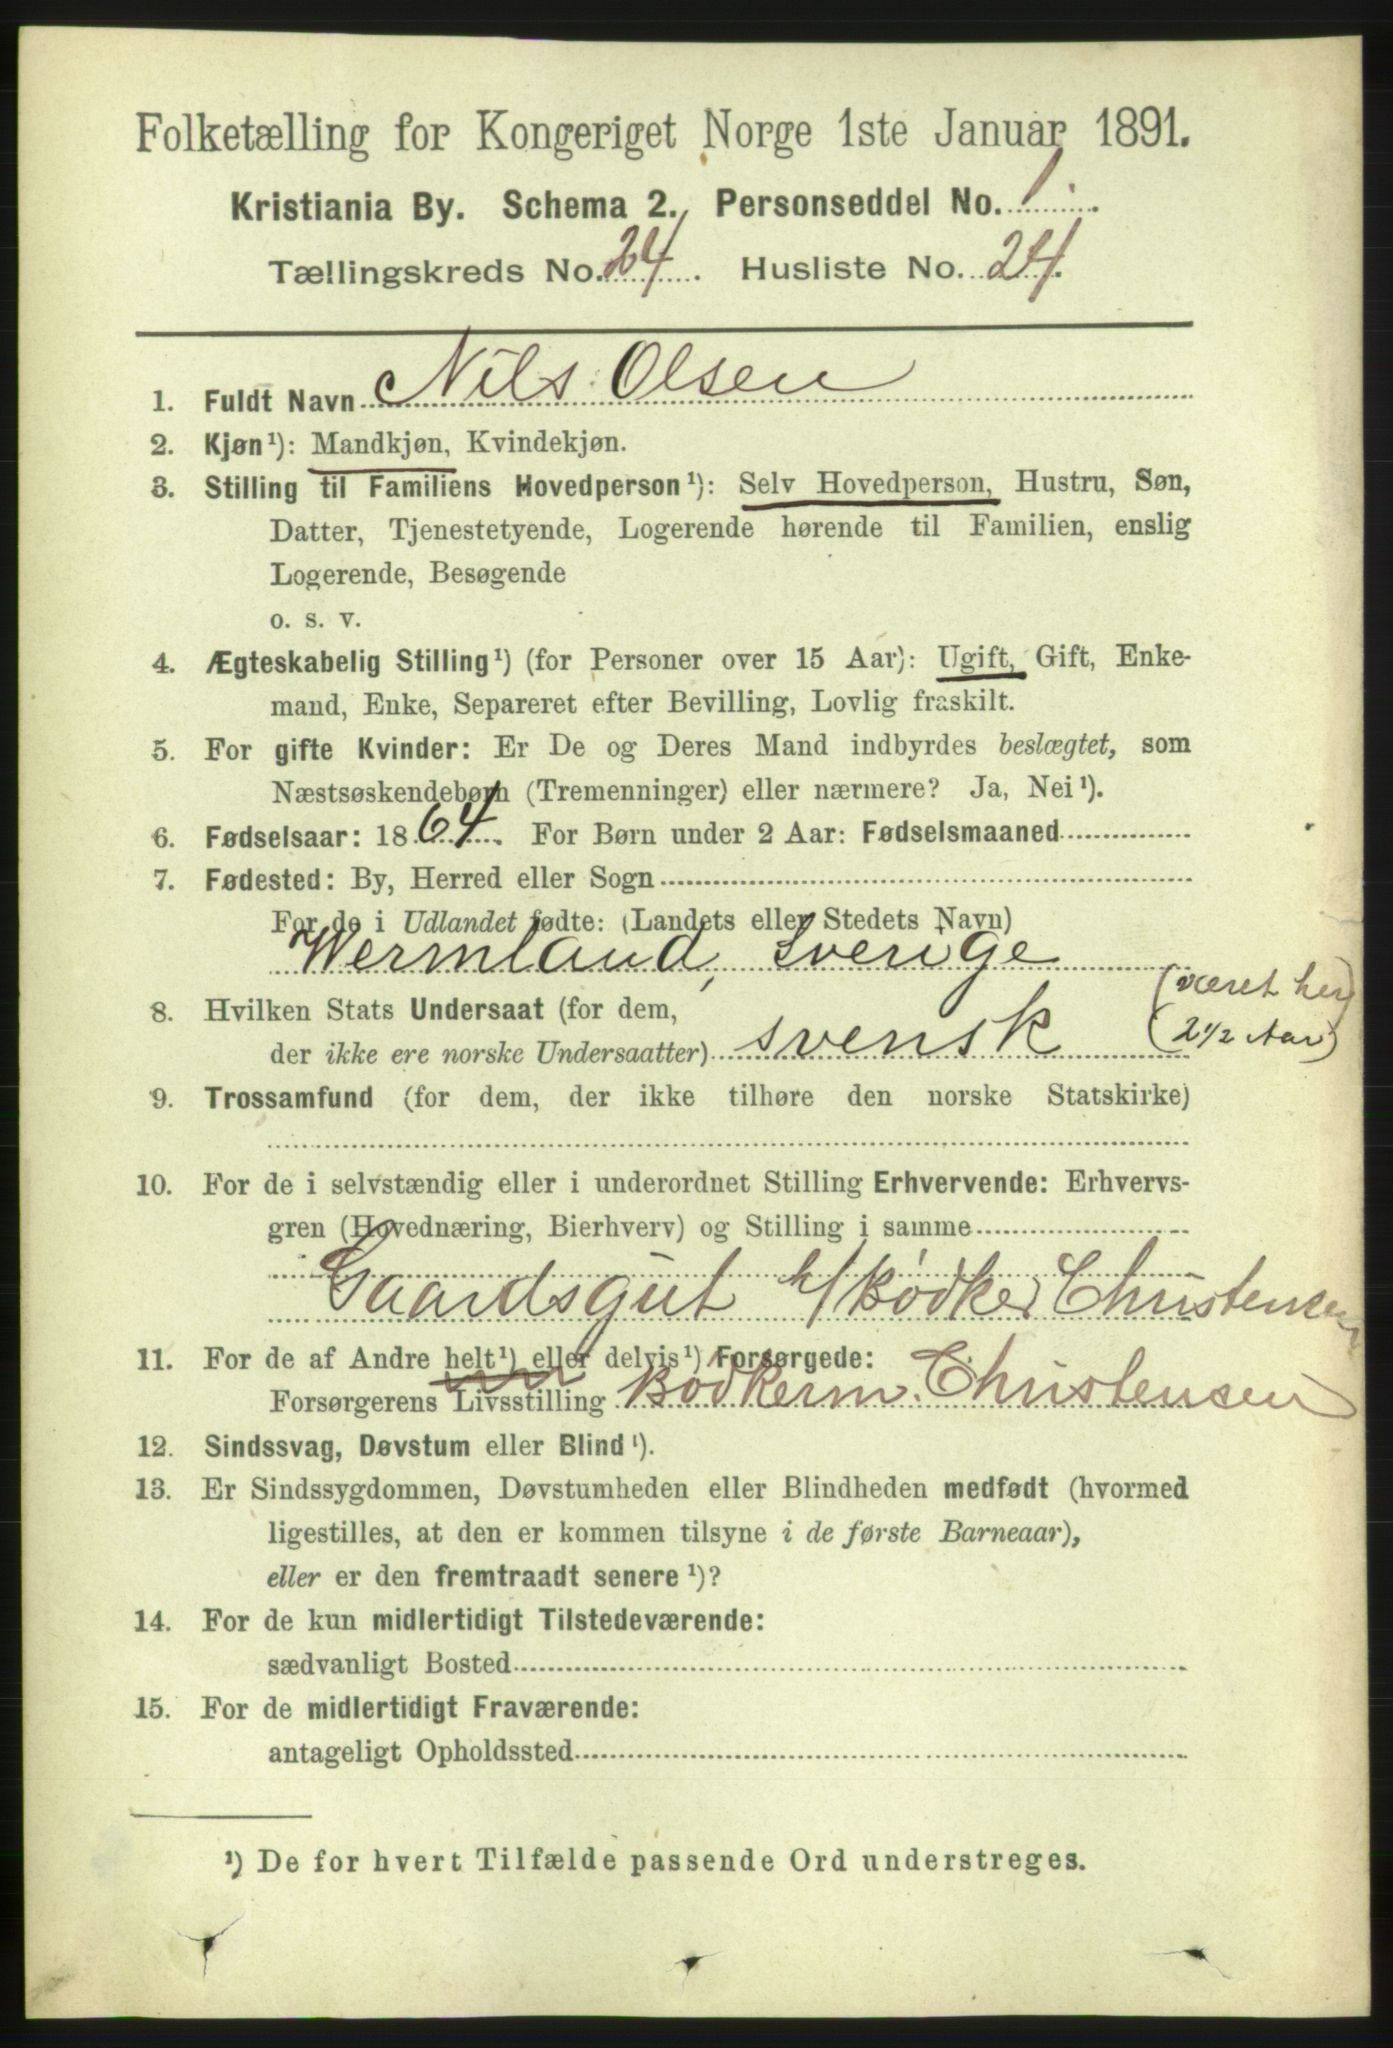 Folketælling for Kongeriget Norge 1ste Januar 1891.
Kristiania By. Schema 2. Personseddel No. 1.
Tællingskreds No. 24. Husliste No. 24.
1. Fuldt Navn Nils Olsen
2. Kjøn¹): Mandkjøn, Kvindekjøn.
3. Stilling til Familiens Hovedperson¹): Selv Hovedperson, Hustru, Søn,
Datter, Tjenestetyende, Logerende hørende til Familien, enslig
Logerende, Besøgende
o. s. v.
4. Ægteskabelig Stilling¹) (for Personer over 15 Aar): Ugift, Gift, Enke-
mand, Enke, Separeret efter Bevilling, Lovlig fraskilt.
5. For gifte Kvinder: Er De og Deres Mand indbyrdes beslægtet, som
Næstsøskendebørn (Tremenninger) eller nærmere? Ja, Nei¹).
6. Fødselsaar: 1864. For Børn under 2 Aar: Fødselsmaaned
7. Fødested: By, Herred eller Sogn
For de i Udlandet fødte: (Landets eller Stedets Navn)
Wermland, Sverige
(været her
8. Hvilken Stats Undersaat (for dem,
der ikke ere norske Undersaatter) svensk (2½ Aar)
9. Trossamfund (for dem, der ikke tilhøre den norske Statskirke)
10. For de i selvstændig eller i underordnet Stilling Erhvervende: Erhvervs-
gren (Hovednæring, Bierhverv) og Stilling i samme
Gaardsgut h/Bødker Christensen
11. For de af Andre helt¹) eller delvis¹) Forsørgede:
Forsørgerens Livsstilling Bødkerm. Christensen
12. Sindssvag, Døvstum eller Blind¹).
13. Er Sindssygdommen, Døvstumheden eller Blindheden medfødt (hvormed
ligestilles, at den er kommen tilsyne i de første Barneaar),
eller er den fremtraadt senere¹)?
14. For de kun midlertidigt Tilstedeværende:
sædvanligt Bosted
15. For de midlertidigt Fraværende:
antageligt Opholdssted
¹) De for hvert Tilfælde passende Ord understreges.